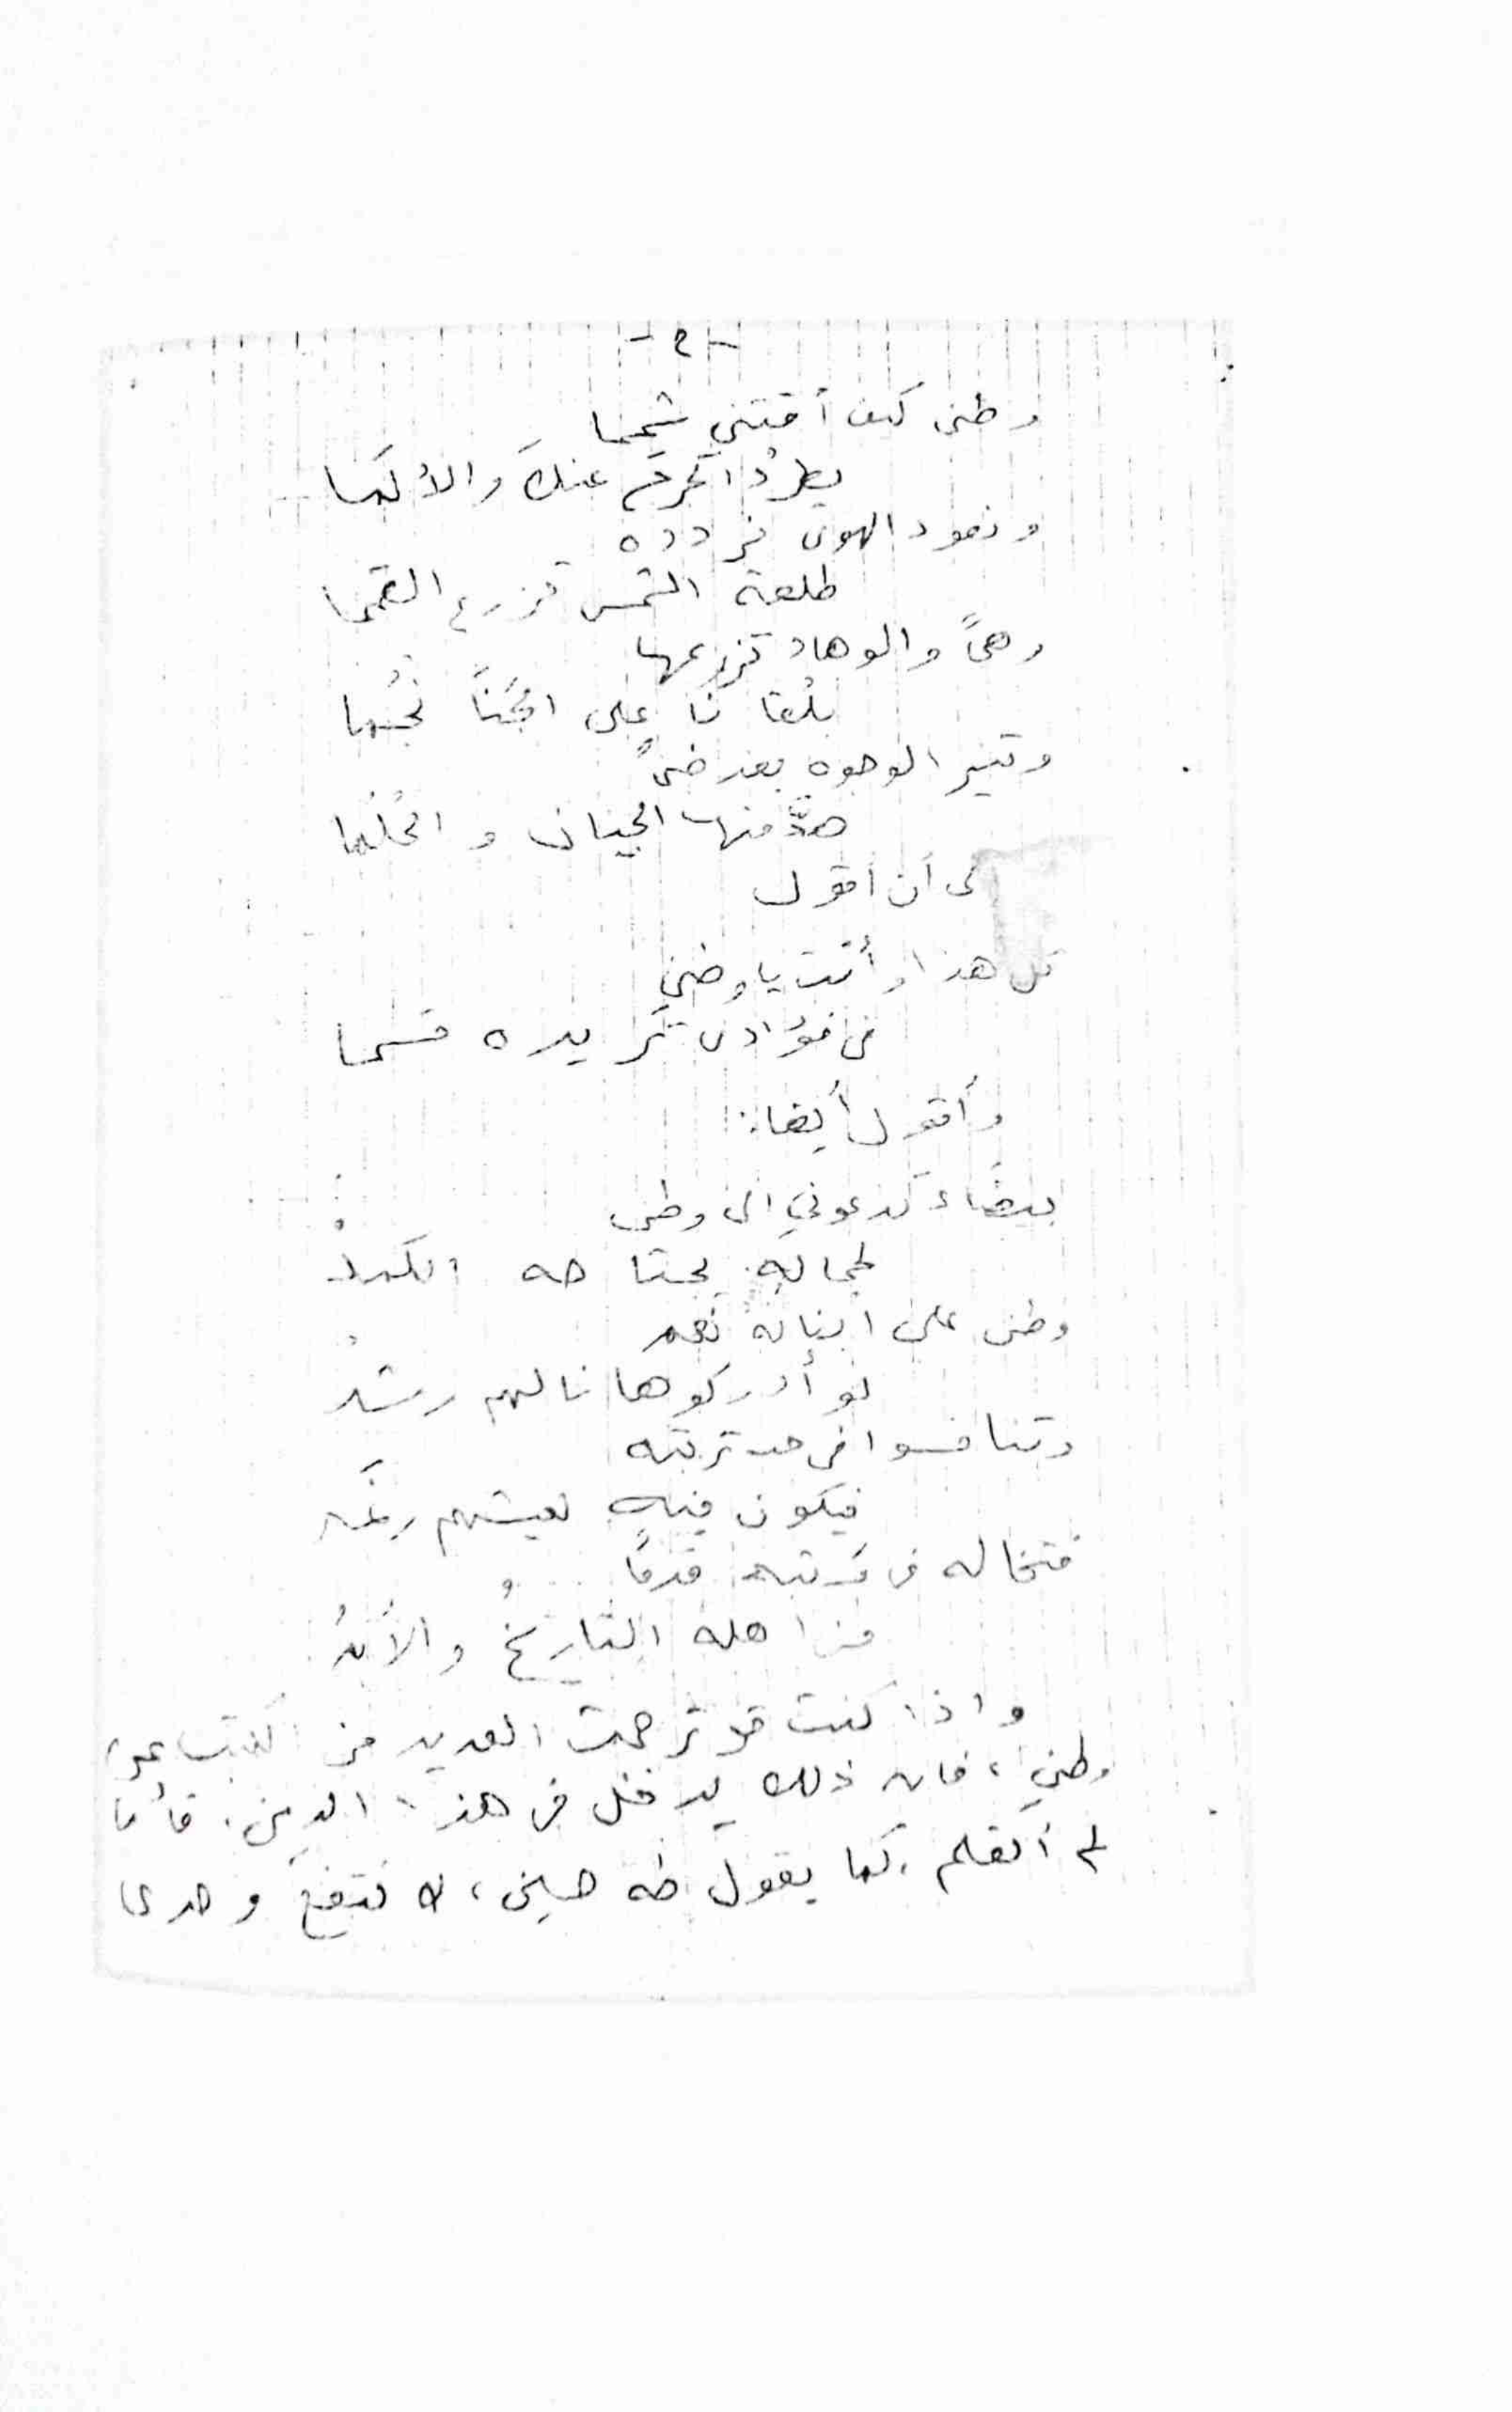 -٢-
وطني كيف أقتني شمما
يطرد الجرح عنك والألما
ونعود الهوى نردده
طلعة الشمس تزرع القمما
وهجًا والوهاد تزرعها
على
وتنير الوجوه بعد ضنى
هدّ منها الجنان والحلما
لى أن أقول
كل هذا وأنت يا وطني
في فؤادي تريده قسما
وأقول أيضا:
بيضاء تدعوني الى وطن
لجماله يحتاجه الكمدُ
وطن على ابنائه نعم
لو أدركوها نالهم رشد
وتنافسوا في حب تربته
فيكون فيه لعيشهم رغَد
فتخاله في قدمًا
من اهله التاريخُ والأبدُ
واذا كنت قد ترجمت العديد من الكتب عن
وطني، فان ذلك يدخل في هذا الدين. فأنا
لم أتعلم، كما يقول طه حسين، لأنتفع وحدى